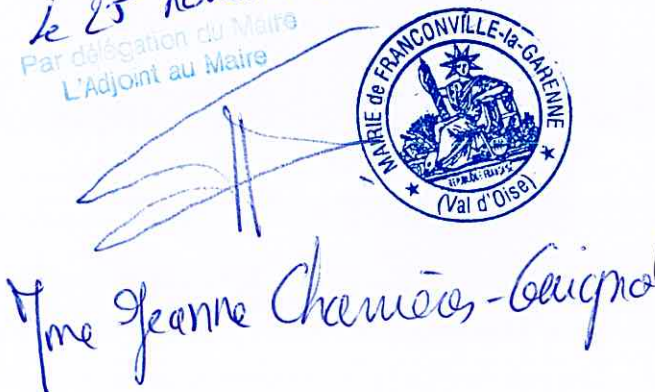 Le 25
Par délégation du Maire
L'Adjoint au Maire
MAIRIE de FRANCONVILLE-la-GARENNE
(Val d'Oise)
Mme Jeanne Charrières-Guigno